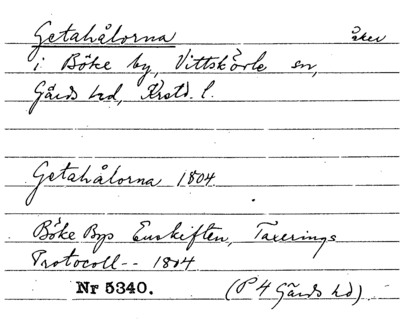 Getahålorna åker
i Böke by, Vittskövle sn,
Gärds hd, Krstds. l.
Getahålorna 1804
Böke Bys Enskiften, Taxerings
Protocoll -- 1804
Nr 5340. (P 4 Gärds hd)